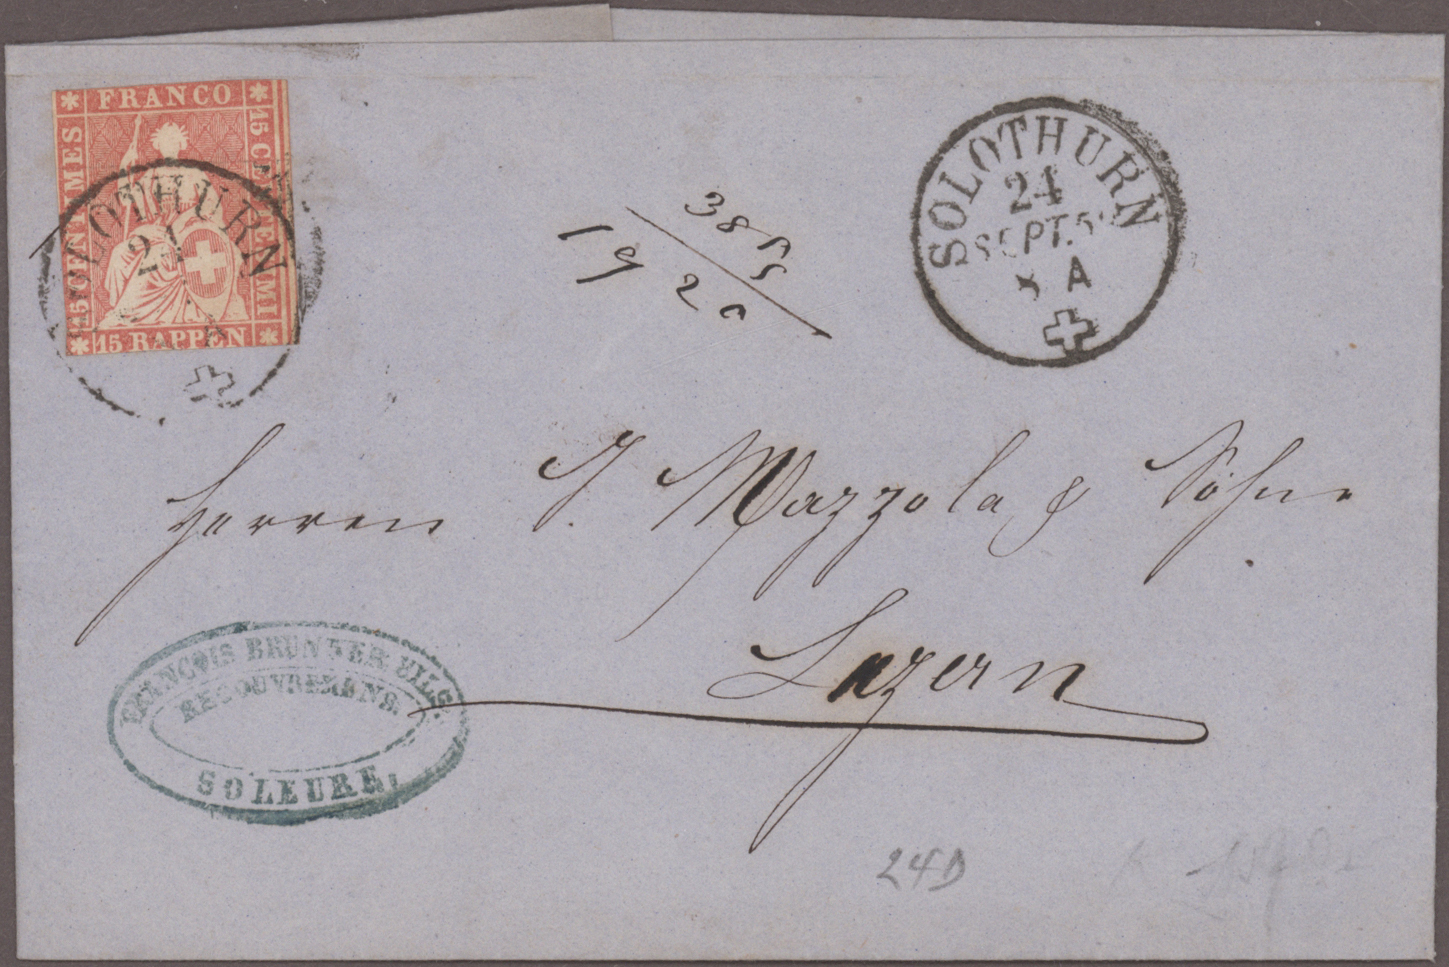 FRANCO
15 CENTIMES
15 CENTESIMI
15 RAPPEN
SOLOTHURN
24
SOLOTHURN
24
SEPT. 5
A
38
19 20
Herren J. Mazzola & Söhne
Luzern
FRANÇOIS BRUNNER FILS.
RECOUVREMENS.
SOLEURE.
24D